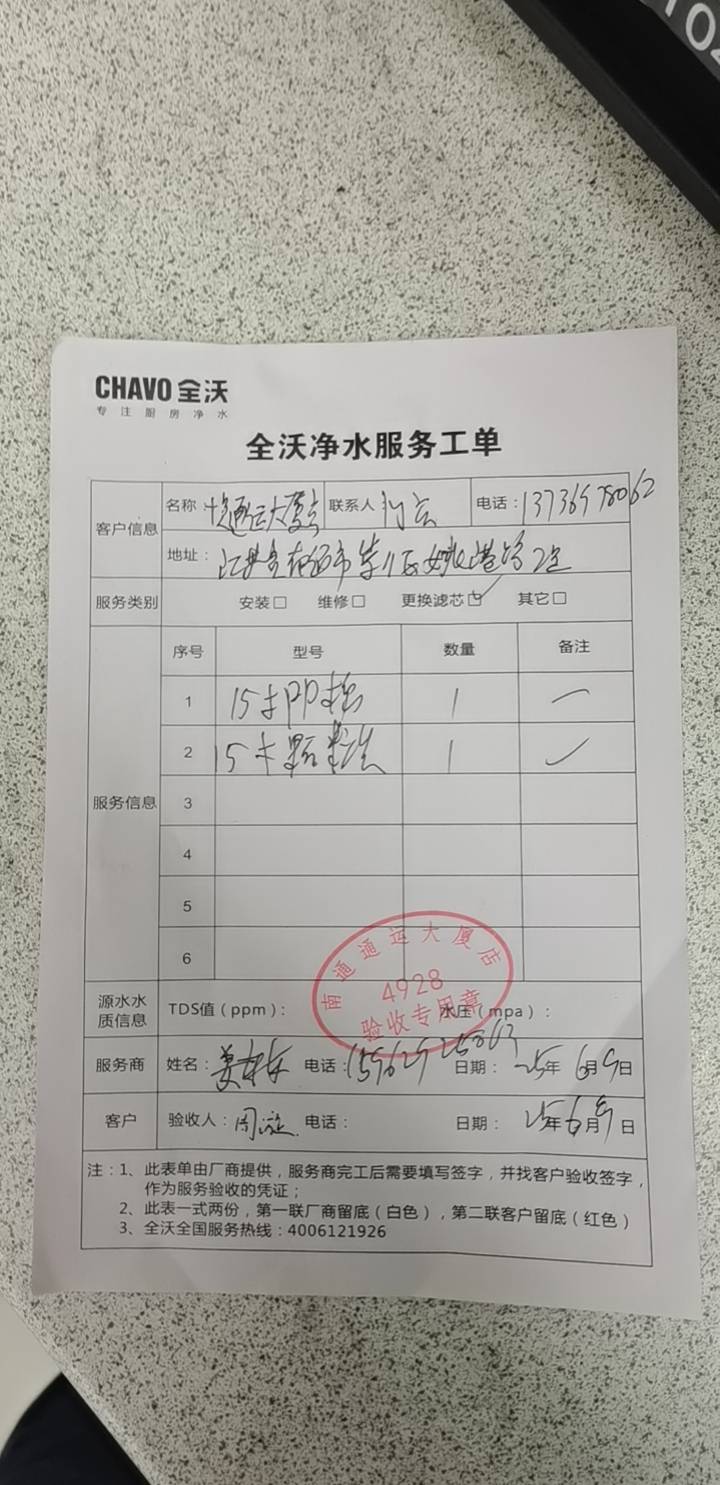 CHAVO 全沃
专注厨房净水
全沃净水服务工单
客户信息
名称 通运大厦店 联系人 电话：13736578062
地址：江苏省南通市崇川区
服务类别 安装□ 维修□ 更换滤芯☑ 其它□
服务信息
序号 型号 数量 备注
1 15寸PP棉 1
2 15寸颗粒炭 1
3
4
5
6
南通通运大厦店
4928
验收专用章
源水水质信息 TDS值（ppm）： 水压（mpa）：
服务商 姓名： 电话： 日期：25年6月9日
客户 验收人： 电话： 日期：25年6月9日
注：1、此表单由厂商提供，服务商完工后需要填写签字，并找客户验收签字，
作为服务验收的凭证；
2、此表一式两份，第一联厂商留底（白色），第二联客户留底（红色）
3、全沃全国服务热线：4006121926